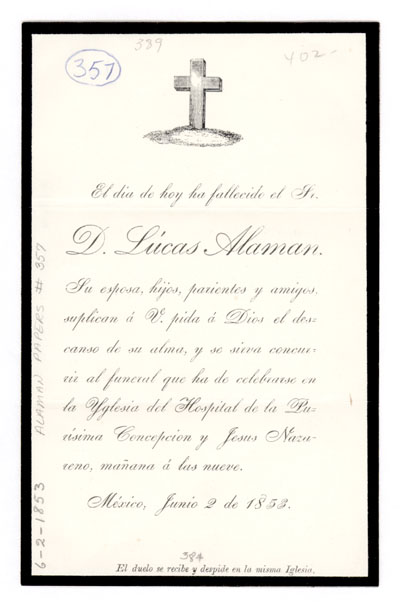 389
402-
357
El dia de hoy ha fallecido el Sr.
D. Lúcas Alaman.
Su esposa, hijos, parientes y amigos,
suplican á V. pida á Dios el des-
canso de su alma, y se sirva concur-
rir al funeral que ha de celebrarse en
la Yglesia del Hospital de la Pu-
rísima Concepcion y Jesus Naza-
reno, mañana á las nueve.
México, Junio 2 de 1853.
384
El duelo se recibe y despide en la misma Iglesia.
6-2-1853 ALAMAN PAPERS # 357